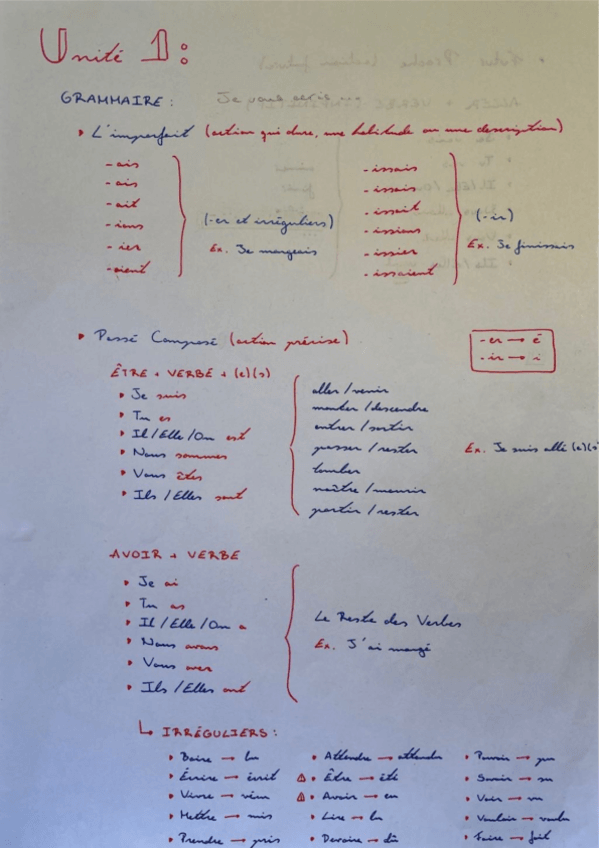 Unité 1:
GRAMMAIRE: Je vous écris...
L'imparfait (action qui dure, une habitude ou une description)
-ais
-ais
-ait
-ions
-ier
-aient
(-er et irréguliers)
Ex. Je mangeais
-issais
-issais
-issait
-issions
-issier
-issaient
(-ir)
Ex. Je finissais
Passé Composé (action précise)
-er → é
-ir → i
ÊTRE + VERBE + (e)(s)
Je suis
Tu es
Il/Elle/On est
Nous sommes
Vous êtes
Ils/Elles sont
aller/venir
monter/descendre
entrer/sortir
passer/rester
tomber
naître/mourir
partir/rester
Ex. Je suis allé(e)(s)
AVOIR + VERBE
Je ai
Tu as
Il/Elle/On a
Nous avons
Vous avez
Ils/Elles ont
Le Reste des Verbes
Ex. J'ai mangé
IRRÉGULIERS:
Boire → bu
Écrire → écrit
Vivre → vécu
Mettre → mis
Prendre → pris
Attendre → attendu
Être → été
Avoir → eu
Lire → lu
Devoire → dû
Pouvoir → pu
Savoir → su
Voir → vu
Vouloir → voulu
Faire → fait